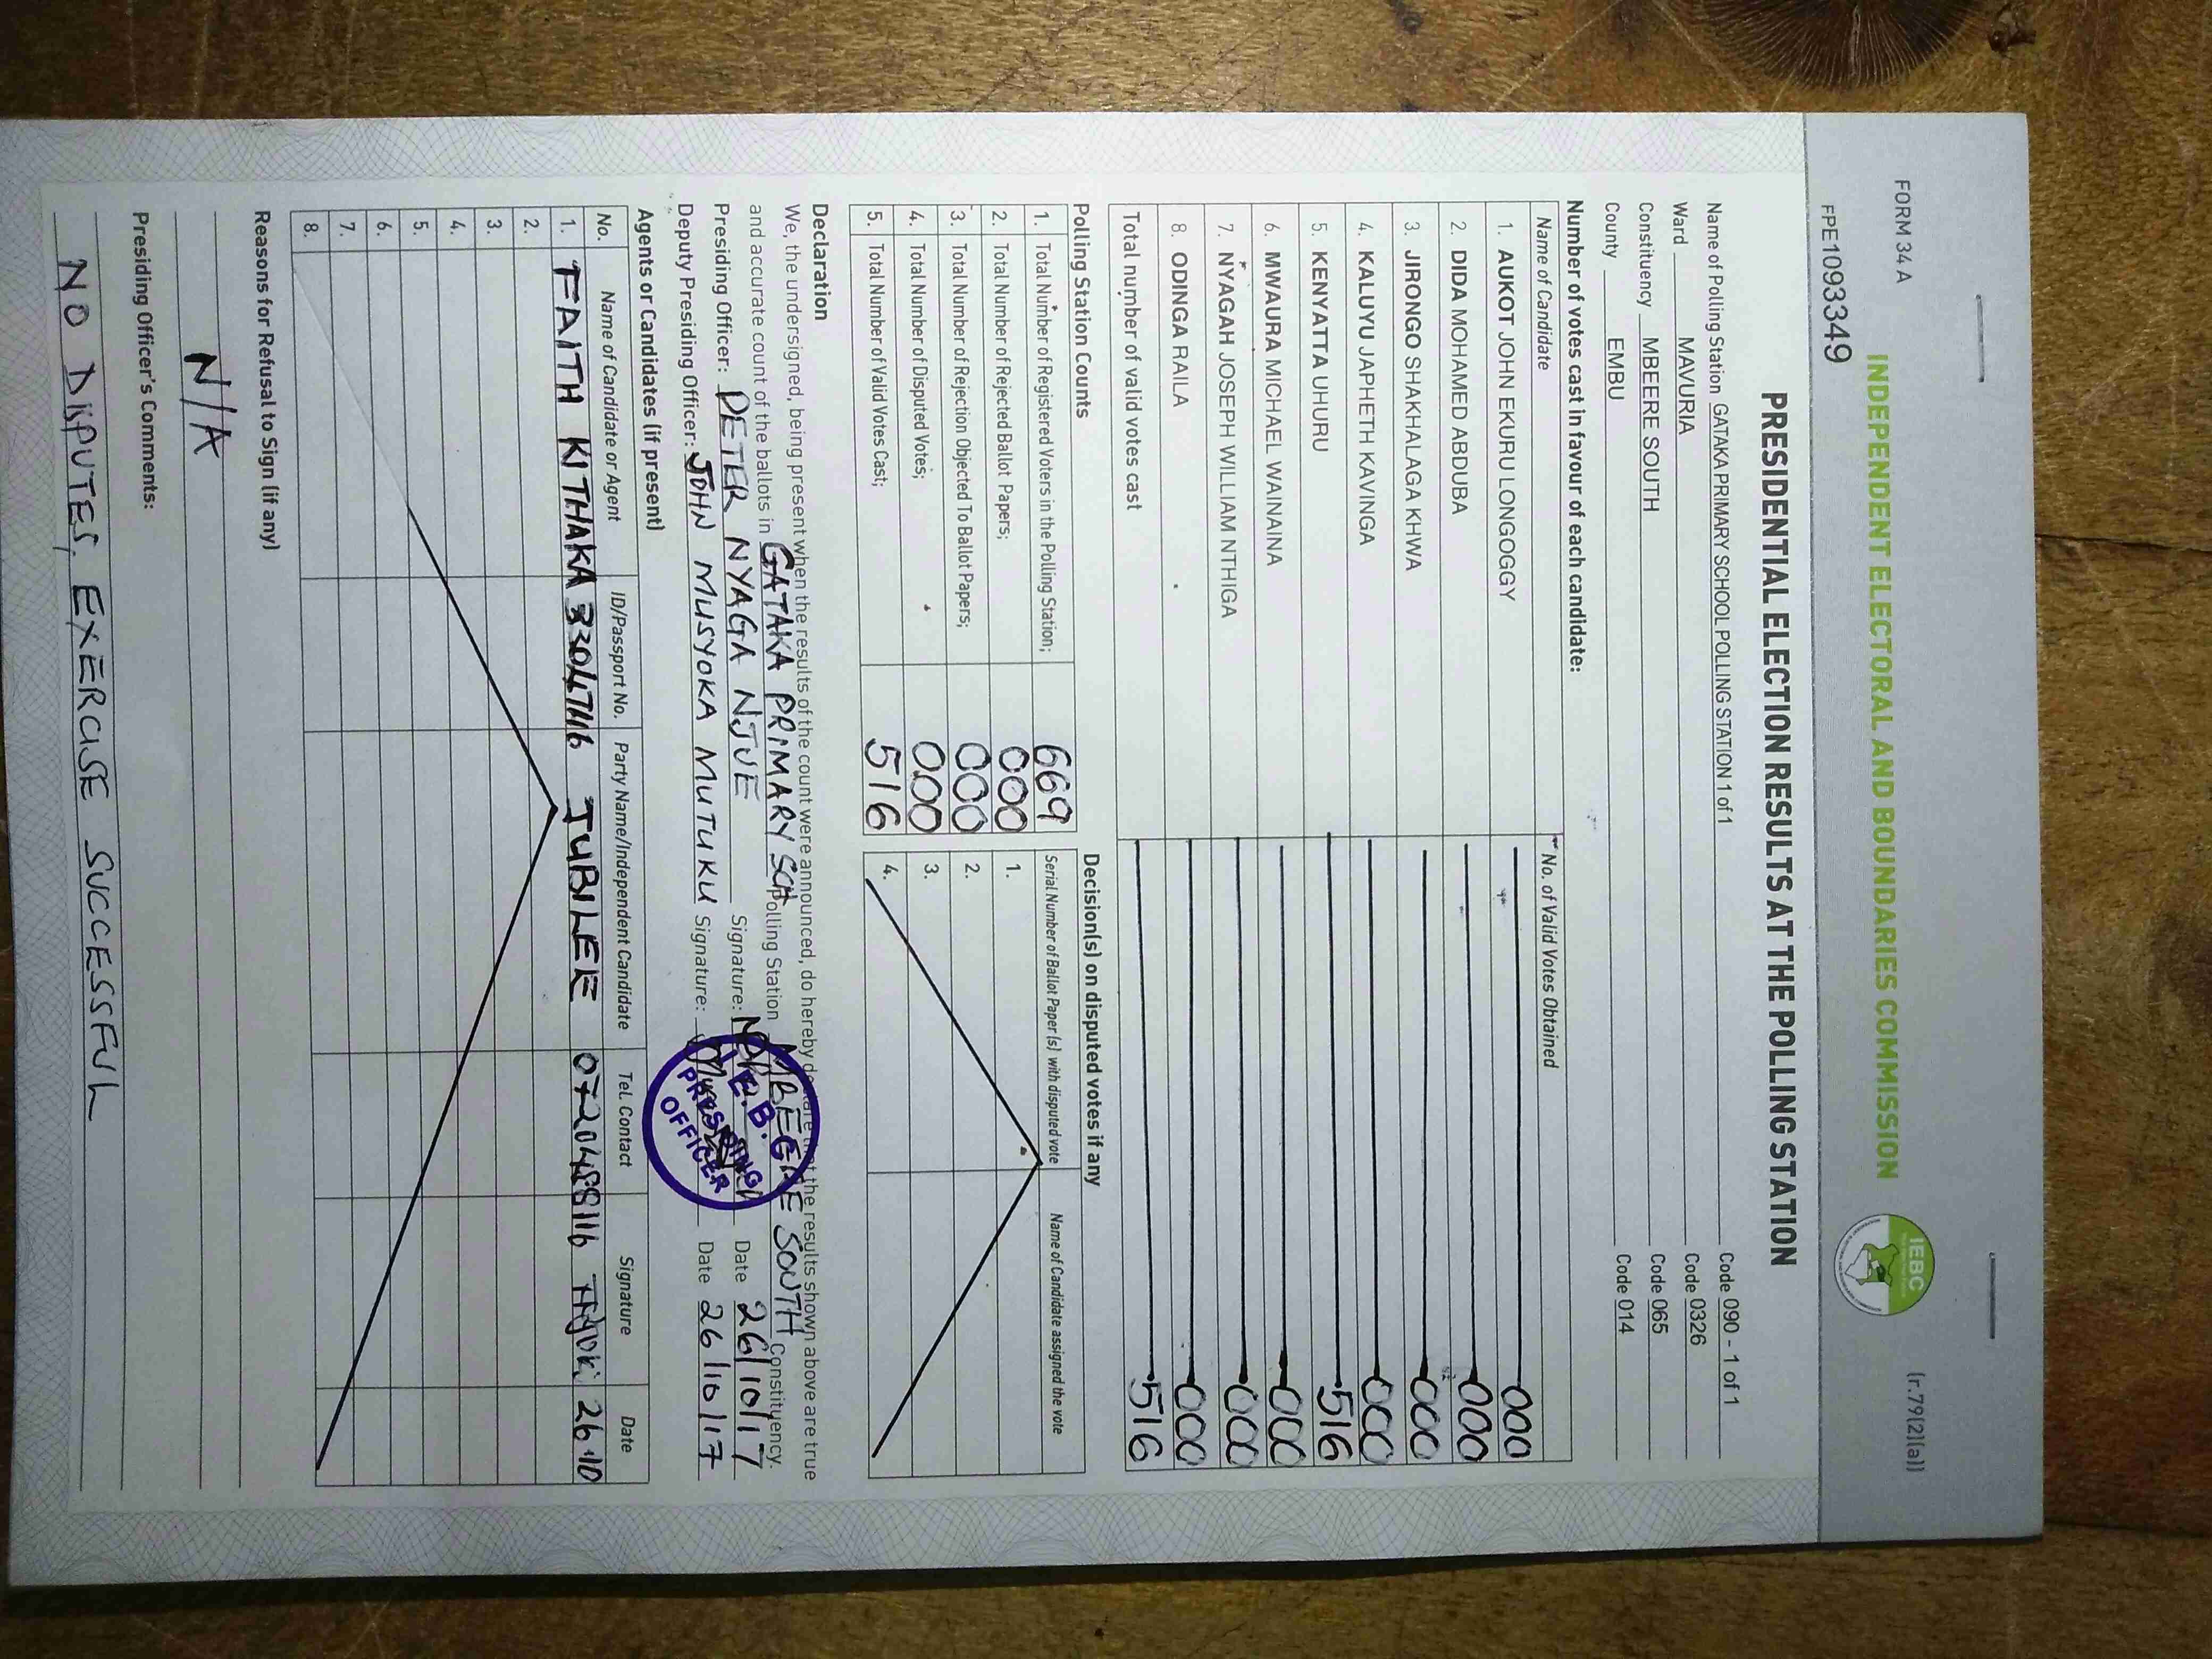 FORM 34 A
(r.79(2)(a))
INDEPENDENT ELECTORAL AND BOUNDARIES COMMISSION
IEBC
FPE1093349
PRESIDENTIAL ELECTION RESULTS AT THE POLLING STATION
Name of Polling Station GATAKA PRIMARY SCHOOL POLLING STATION 1 of 1 Code 090 - 1 of 1
Ward MAVURIA Code 0326
Constituency MBEERE SOUTH Code 065
County EMBU Code 014
Number of votes cast in favour of each candidate:
Name of Candidate No. of Valid Votes Obtained
1. AUKOT JOHN EKURU LONGOGGY 000
2. DIDA MOHAMED ABDUBA 000
3. JIRONGO SHAKHALAGA KHWA 000
4. KALUYU JAPHETH KAVINGA 000
5. KENYATTA UHURU 516
6. MWAURA MICHAEL WAINAINA 000
7. NYAGAH JOSEPH WILLIAM NTHIGA 000
8. ODINGA RAILA 000
Total number of valid votes cast 516
Polling Station Counts
1. Total Number of Registered Voters in the Polling Station; 669
2. Total Number of Rejected Ballot Papers; 000
3. Total Number of Rejection Objected To Ballot Papers; 000
4. Total Number of Disputed Votes; 000
5. Total Number of Valid Votes Cast; 516
Decision(s) on disputed votes if any
Serial Number of Ballot Paper(s) with disputed vote Name of Candidate assigned the vote
1.
2.
3.
4.
Declaration
We, the undersigned, being present when the results of the count were announced, do hereby declare that the results shown above are true
and accurate count of the ballots in GATAKA PRIMARY SCH Polling Station MBEERE SOUTH Constituency.
Presiding Officer: PETER NYAGA NJUE Signature: Date 26/10/17
Deputy Presiding Officer: JOHN MUSYOKA MUTUKU Signature: Date 26/10/17
I.E.B.C
PRESIDING
OFFICER
Agents or Candidates (if present)
No. Name of Candidate or Agent ID/Passport No. Party Name/Independent Candidate Tel. Contact Signature Date
1. FAITH KITHAKA JUBILEE 26.10
2.
3.
4.
5.
6.
7.
8.
Reasons for Refusal to Sign (if any)
N/A
Presiding Officer's Comments:
NO DISPUTES, EXERCISE SUCCESSFUL